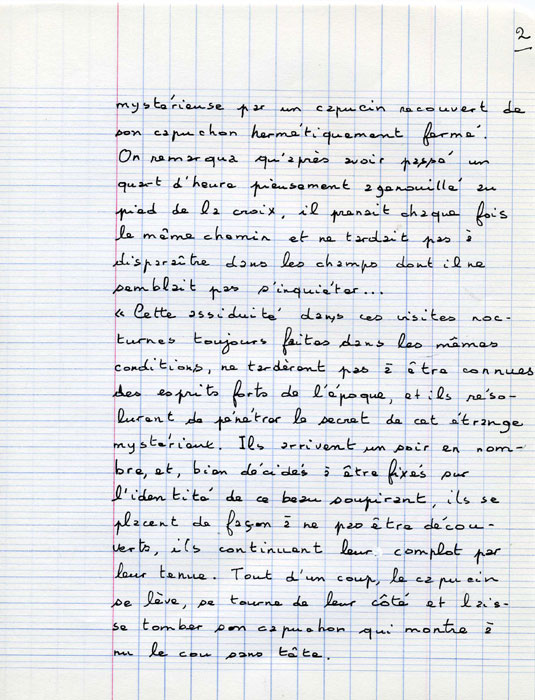 2
mystérieuse par un capucin recouvert de
son capuchon hermétiquement fermé.
On remarqua qu'après avoir passé un
quart d'heure pieusement agenouillé au
pied de la croix, il prenait chaque fois
le même chemin et ne tardait pas à
disparaître dans les champs dont il ne
semblait pas s'inquiéter...
« Cette assiduité dans ces visites noc-
turnes toujours faites dans les mêmes
conditions, ne tardèrent pas à être connues
des esprits forts de l'époque, et ils réso-
lurent de pénétrer le secret de cet étrange
mystérieux. Ils arrivent un soir en nom-
bre, et, bien décidés à être fixés sur
l'identité de ce beau soupirant, ils se
placent de façon à ne pas être décou-
verts, ils continuent leur complot par
leur tenue. Tout d'un coup, le capucin
se lève, se tourne de leur côté et lais-
se tomber son capuchon qui montre à
nu le cou sans tête.